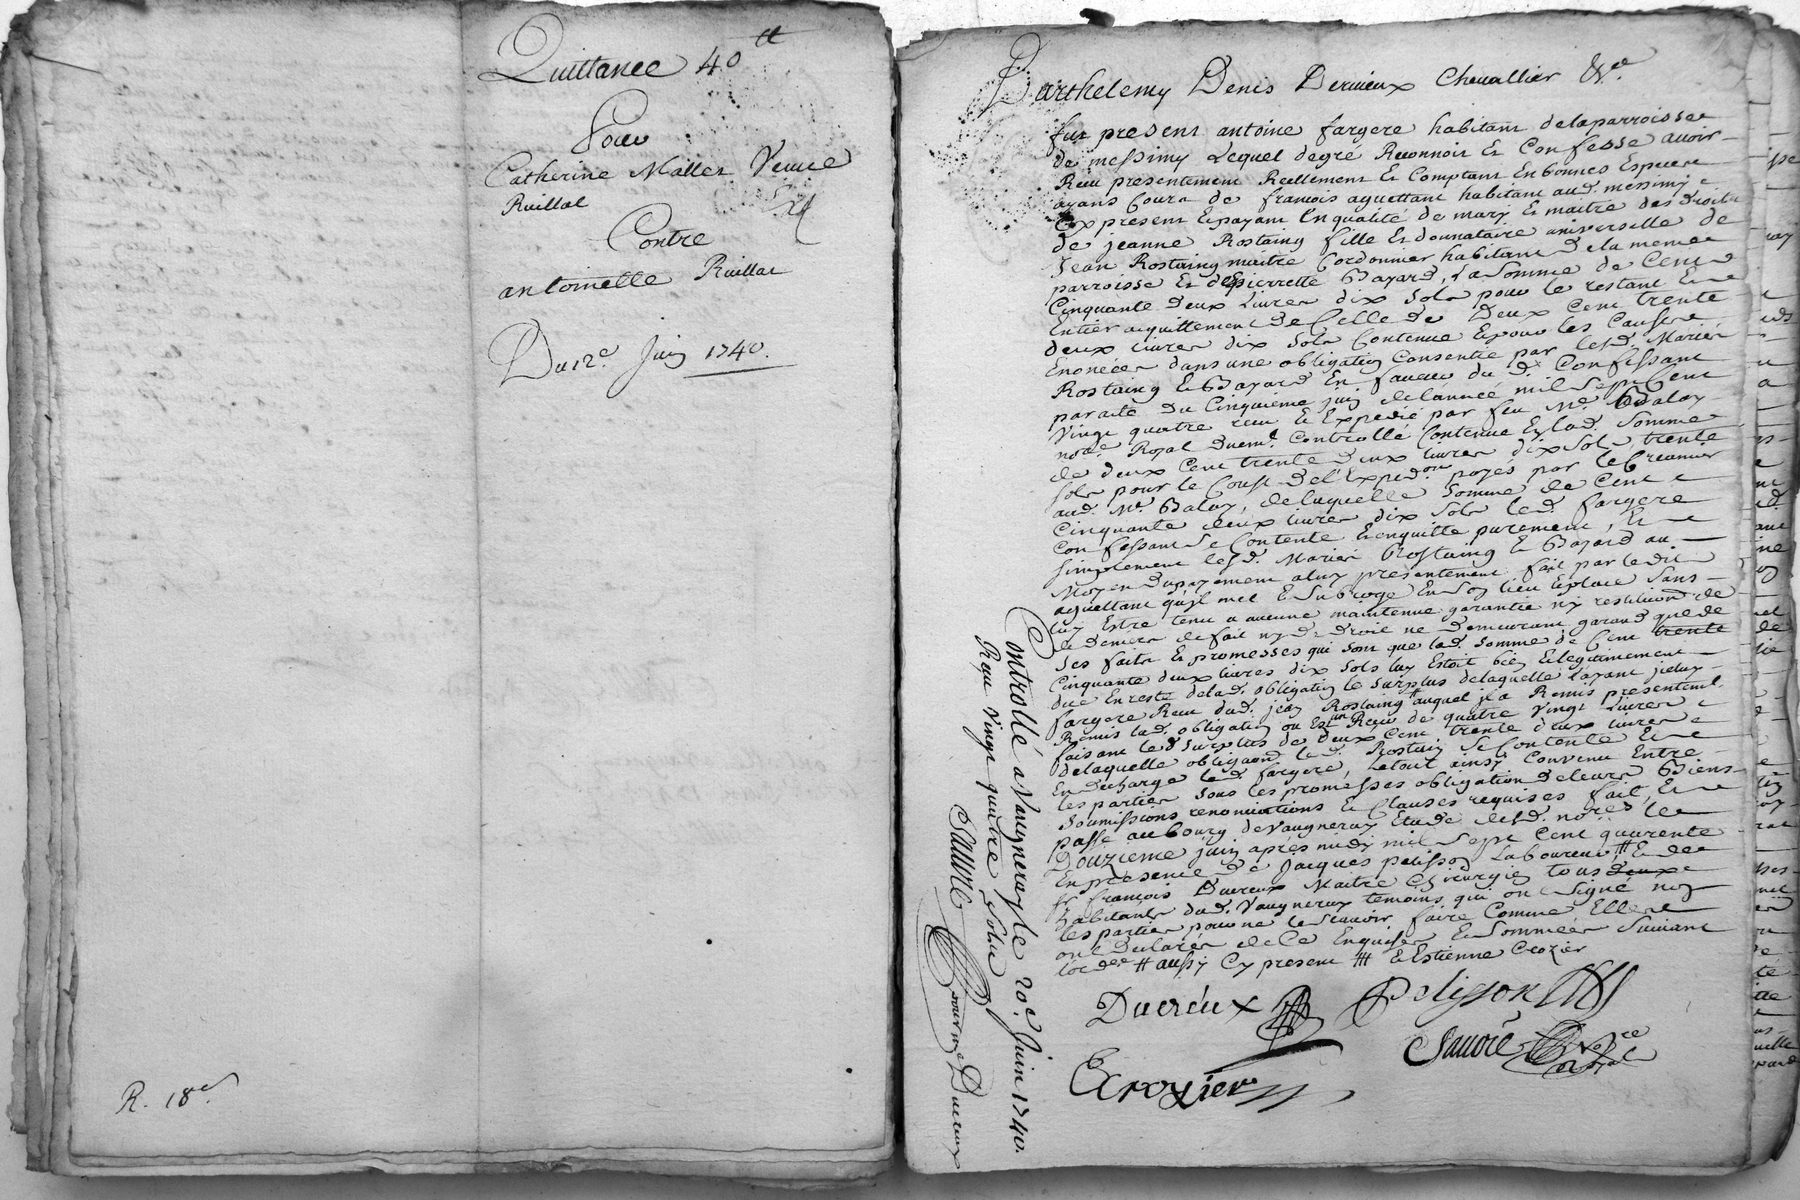 Quittance 40 ₶
Pour
Catherine Mallet Veuve
Ruillat
Contre
antoinette Ruillat
Du 12e. Juin 1740.
R. 18e.
Barthelemy Denis Dervieux Chevallier &ce
fut present antoine fargere habitant delaparroisse
de messimy Lequel degré Reconnoit Et Confesse avoir
Receu presentement Reellement Et Comptant Enbonnes Especes
ayans Cours de francois aguettant habitant aud. messimy
Cy present Et payant Enqualité de mary Et maitre des droits
de jeanne Rostaing fille Et donnataire universelle de
Jean Rostaing maitre Cordonnier habitant de la meme
parroisse Et de pierrette Bayard, La Somme de Cent
Cinquante deux Livres dix Sols pour le restant Et
Entier acquittement de Celle de Deux Cent trente
deux Livres dix Sols Contenue Et pour les Causes
Enoncées dans une obligation Consentie par lesd. Mariés
Rostaing Et Bayard En faveur du d. Confessant
par acte du Cinquieme juin de l'année mil Sept Cent
Vingt quatre receu Et Expedié par feu Me. Balay
nore. Royal duement Controllé Contenue En lad. Somme
de deux Cent trente Deux Livres dix Sols trente
Sols pour le Coust de l'Expedon payés par le Creancier
aud. Me. Balay, de laquelle Somme de Cent
Cinquante deux Livres dix Sols led. fargere
Confessant Se Contente Et enquitte purement, Et
Simplement lesd. Mariés Rostaing Et Bayard au
Moyen du payement aluy presentement fait par ledit
aguettant qu'il met Et Subroge En Son lieu Et place Sans
luy Estre tenu a aucune maintenue garantie ny restitution de
deniers de fait ny de Droit ne Demeurant garand que de
Ses faits Et promesses qui Sont que lad. Somme de Cent trente
Cinquante deux Livres dix Sols luy Estoit bien Et legitimement
due En reste delad. obligation le Surplus delaquelle layant jceluy
fargere Receu dud. jean Rostaing auquel jl a Remis presentement
Remis lad. obligation ou Est un Receu de quatre Vingt Livres
faisant led. Surplus de Deux Cent trente deux Livres
delaquelle obligaon led. Rostaing Se Contente Et
En Decharge led. fargere, Letout ainsy Convenu Entre
les parties Sous les promesses obligation de leurs Biens
Soumissions renonciations Et Clauses requises fait, Et
passé au bourg de Vaugneray Etude desd. nores. le
Douzieme juin après midy mil Sept Cent quarente
En presence de Jacques pelisson Laboureur # Et de
Sr. francois Ducreux Maitre Chirurgien tous Deux
habitants dud. Vaugneray temoins qui ont Signé non
les parties pour ne le Scavoir faire Comme Elles
ont Declarées de Ce Enquises Et Sommées Suivant
lordce # aussy Cy present ## Et Estienne Crozier
Ducreux Pelisson
Sauvré Nore Royal
Crozier
Controllé a Vaugneray le 20e. Juin 1740.
Receu Vingt quatre Sols
Sauvre pour mr Ducreux